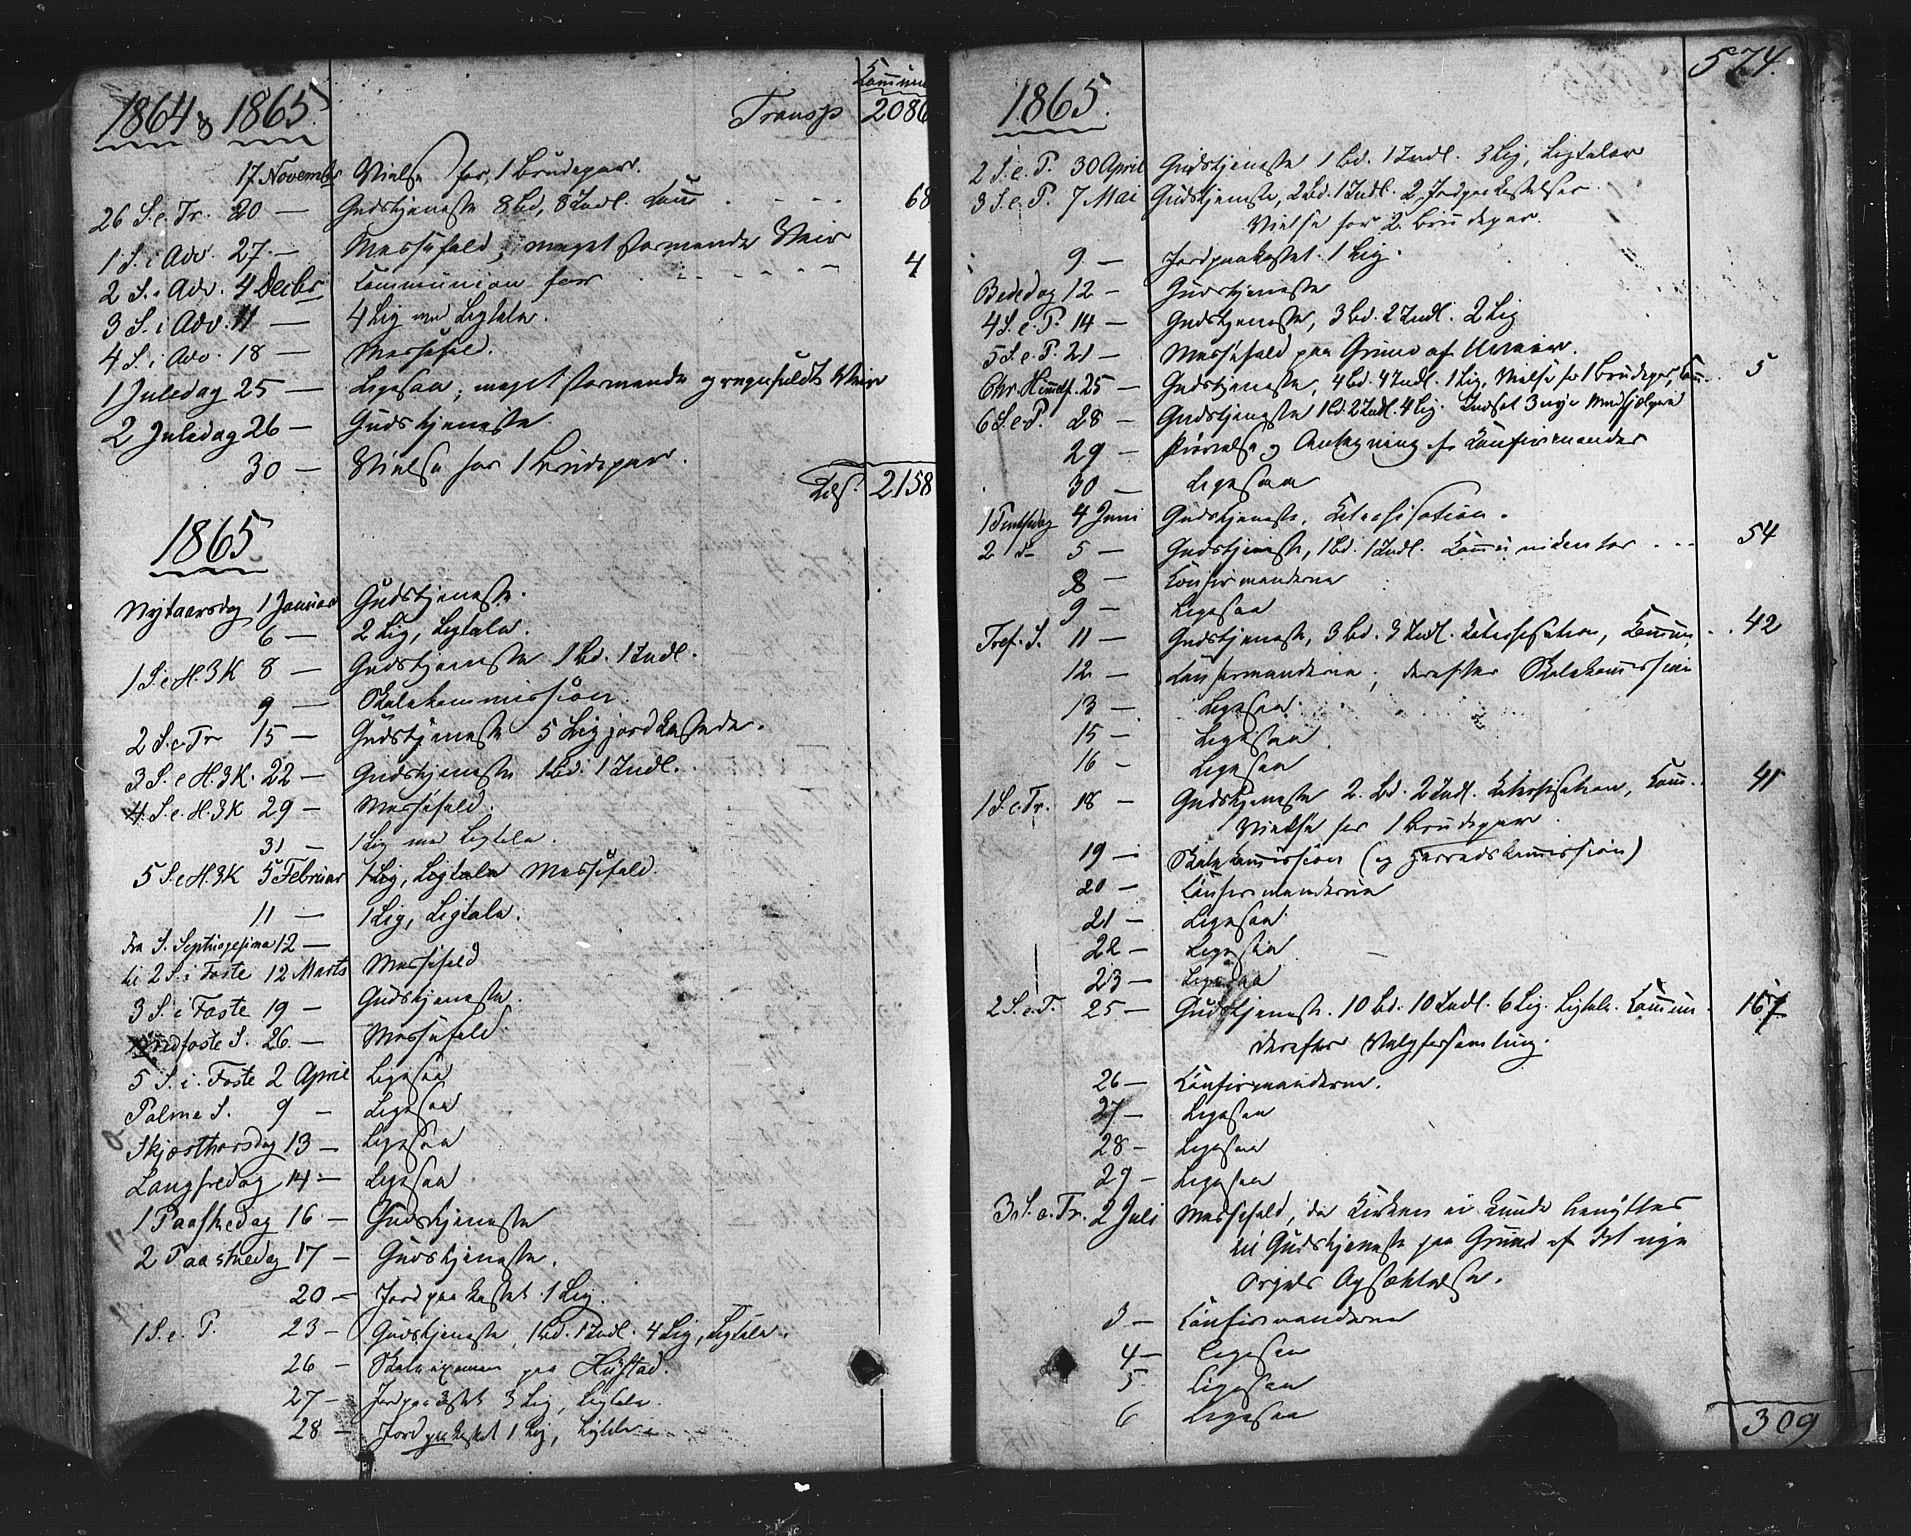 Commun
1864 & 1865. Transp 2086
17 November Vielse for 1 Brudepar.
26 S. e. Tr. 20 — Gudstjeneste 8 bd, 8 Indl. Comm . - - - 68
1 S. i Adv. 27. — Messefald, meget stormende Veir
2 S. i Adv. 4 Decbr Communion for - - - - - 4
3 S. i Adv. 11 — 4 Lig med Ligtale.
4 S. i Adv. 18 — Messefald.
1 Juledag 25 — Ligesaa; meget stormende og regnfuldt Veir
2 Juledag 26 — Gudstjeneste.
30 — Vielse for 1 Brudepar.
Tils. 2158
1865
Nytaarsdag 1 Januar Gudstjeneste.
6 — 2 Lig, Ligtale.
1 S. e H. 3 K 8 — Gudstjeneste 1 bd. 1 Indl.
9 — Skolekommission.
2 S. e Tr 15 — Gudstjeneste 5 Lig jordkastede.
3 S. e H. 3 K. 22 — Gudstjeneste 1 bd. 1 Indl.
4. S. e. H. 3 K 29 — Messefald.
31 — 1 Lig med Ligtale.
5 S. e H. 3 K 5 Februar 1 Lig, Ligtale Messefald.
11 — 1 Lig, Ligtale.
Fra S. Septuagesima 12 —
til 2 S. i Faste 12 Marts Messefald
3 S. i Faste 19 — Gudstjeneste.
Midfaste S. 26. — Messefald
5 S. i. Faste 2 April Ligesaa
Palme S. 9 — Ligesaa
Skjærthorsdag 13 — Ligesaa
Langfredag 14 — Ligesaa
1 Paaskedag 16 — Gudstjeneste
2 Paaskedag 17 — Gudstjeneste.
20 — Jordpaakastet 1 Lig.
1 S. e. P. 23 — Gudstjeneste, 1 bd. 1 Indl. 4 Lig, Ligtale.
26 — Skoleexamen paa Hustad.
27 — Jordpaakastet 3 Lig, Ligtale.
28 — Jordpaakastet 1 Lig, Ligtale
574.
1865.
2 S. e. P. 30 April Gudstjeneste 1 bd. 1 Indl. 3 Lig, Ligtaler
3 S. e P. 7 Mai Gudstjeneste, 2 bd. 1 Indl. 2 Jordpaakastelser.
Vielse for 2 Brudepar.
9 — Jordpaakastet 1 Lig.
Bededag 12 — Gudstjeneste
4 S. e. P. 14 — Gudstjeneste, 3 bd. 2 Indl. 2 Lig
5 S. e. P. 21 — Messefald paa Grund af Uveier.
Chr. Himmelf. 25 — Gudstjeneste, 4 bd. 4 Indl. 1 Lig, Vielse for 1 Brudepar, Com. . 5
6 S. e. P. 28 — Gudstjeneste 1 bd. 2 Indl. 4 Lig. Indsat 3 nye Medhjælpere
29 — Prøvelse og Antagning af Konfirmander
30 — Ligesaa
1 Pintsedag 4 Juni Gudstjeneste, Katechisation.
2 d— 5 — Gudstjeneste, 1 bd. 1 Indl. Kommunikanter - - - 54
8 — Konfirmanderne
9 — Ligesaa
Tref. S. 11 — Gudstjeneste, 3 bd. 3 Indl. Katechisation, Commun. . 42
12 — Konfirmanderne; derefter Skolekommission
13 — Ligesaa.
15 — Ligesaa
16 — Ligesaa
1 S. e. Tr. 18 — Gudstjeneste 2. bd. 2 Indl. Katechisation, Komm. . 41
Vielse for 1 Brudepar.
19 — Skolekommission (og Herredskommission)
20 — Konfirmanderne
21 — Ligesaa
22 — Ligesaa
23 — Ligesaa
2 S. e. T. 25 — Gudstjeneste. 10 bd. 10 Indl. 6 Lig. Ligtale. Kommun. 167
derefter Valgforsamling.
26 — Konfirmanderne.
27 — Ligesaa
28 — Ligesaa
29 — Ligesaa
3 S. e. Tr. 2 Juli Messefald, da Kirken ei kunde benyttes
til Gudstjeneste paa Grund af det nye
Orgels Opsættelse.
3 — Konfirmanderne
4 — Ligesaa
5 Ligesaa
6 Ligesaa
309